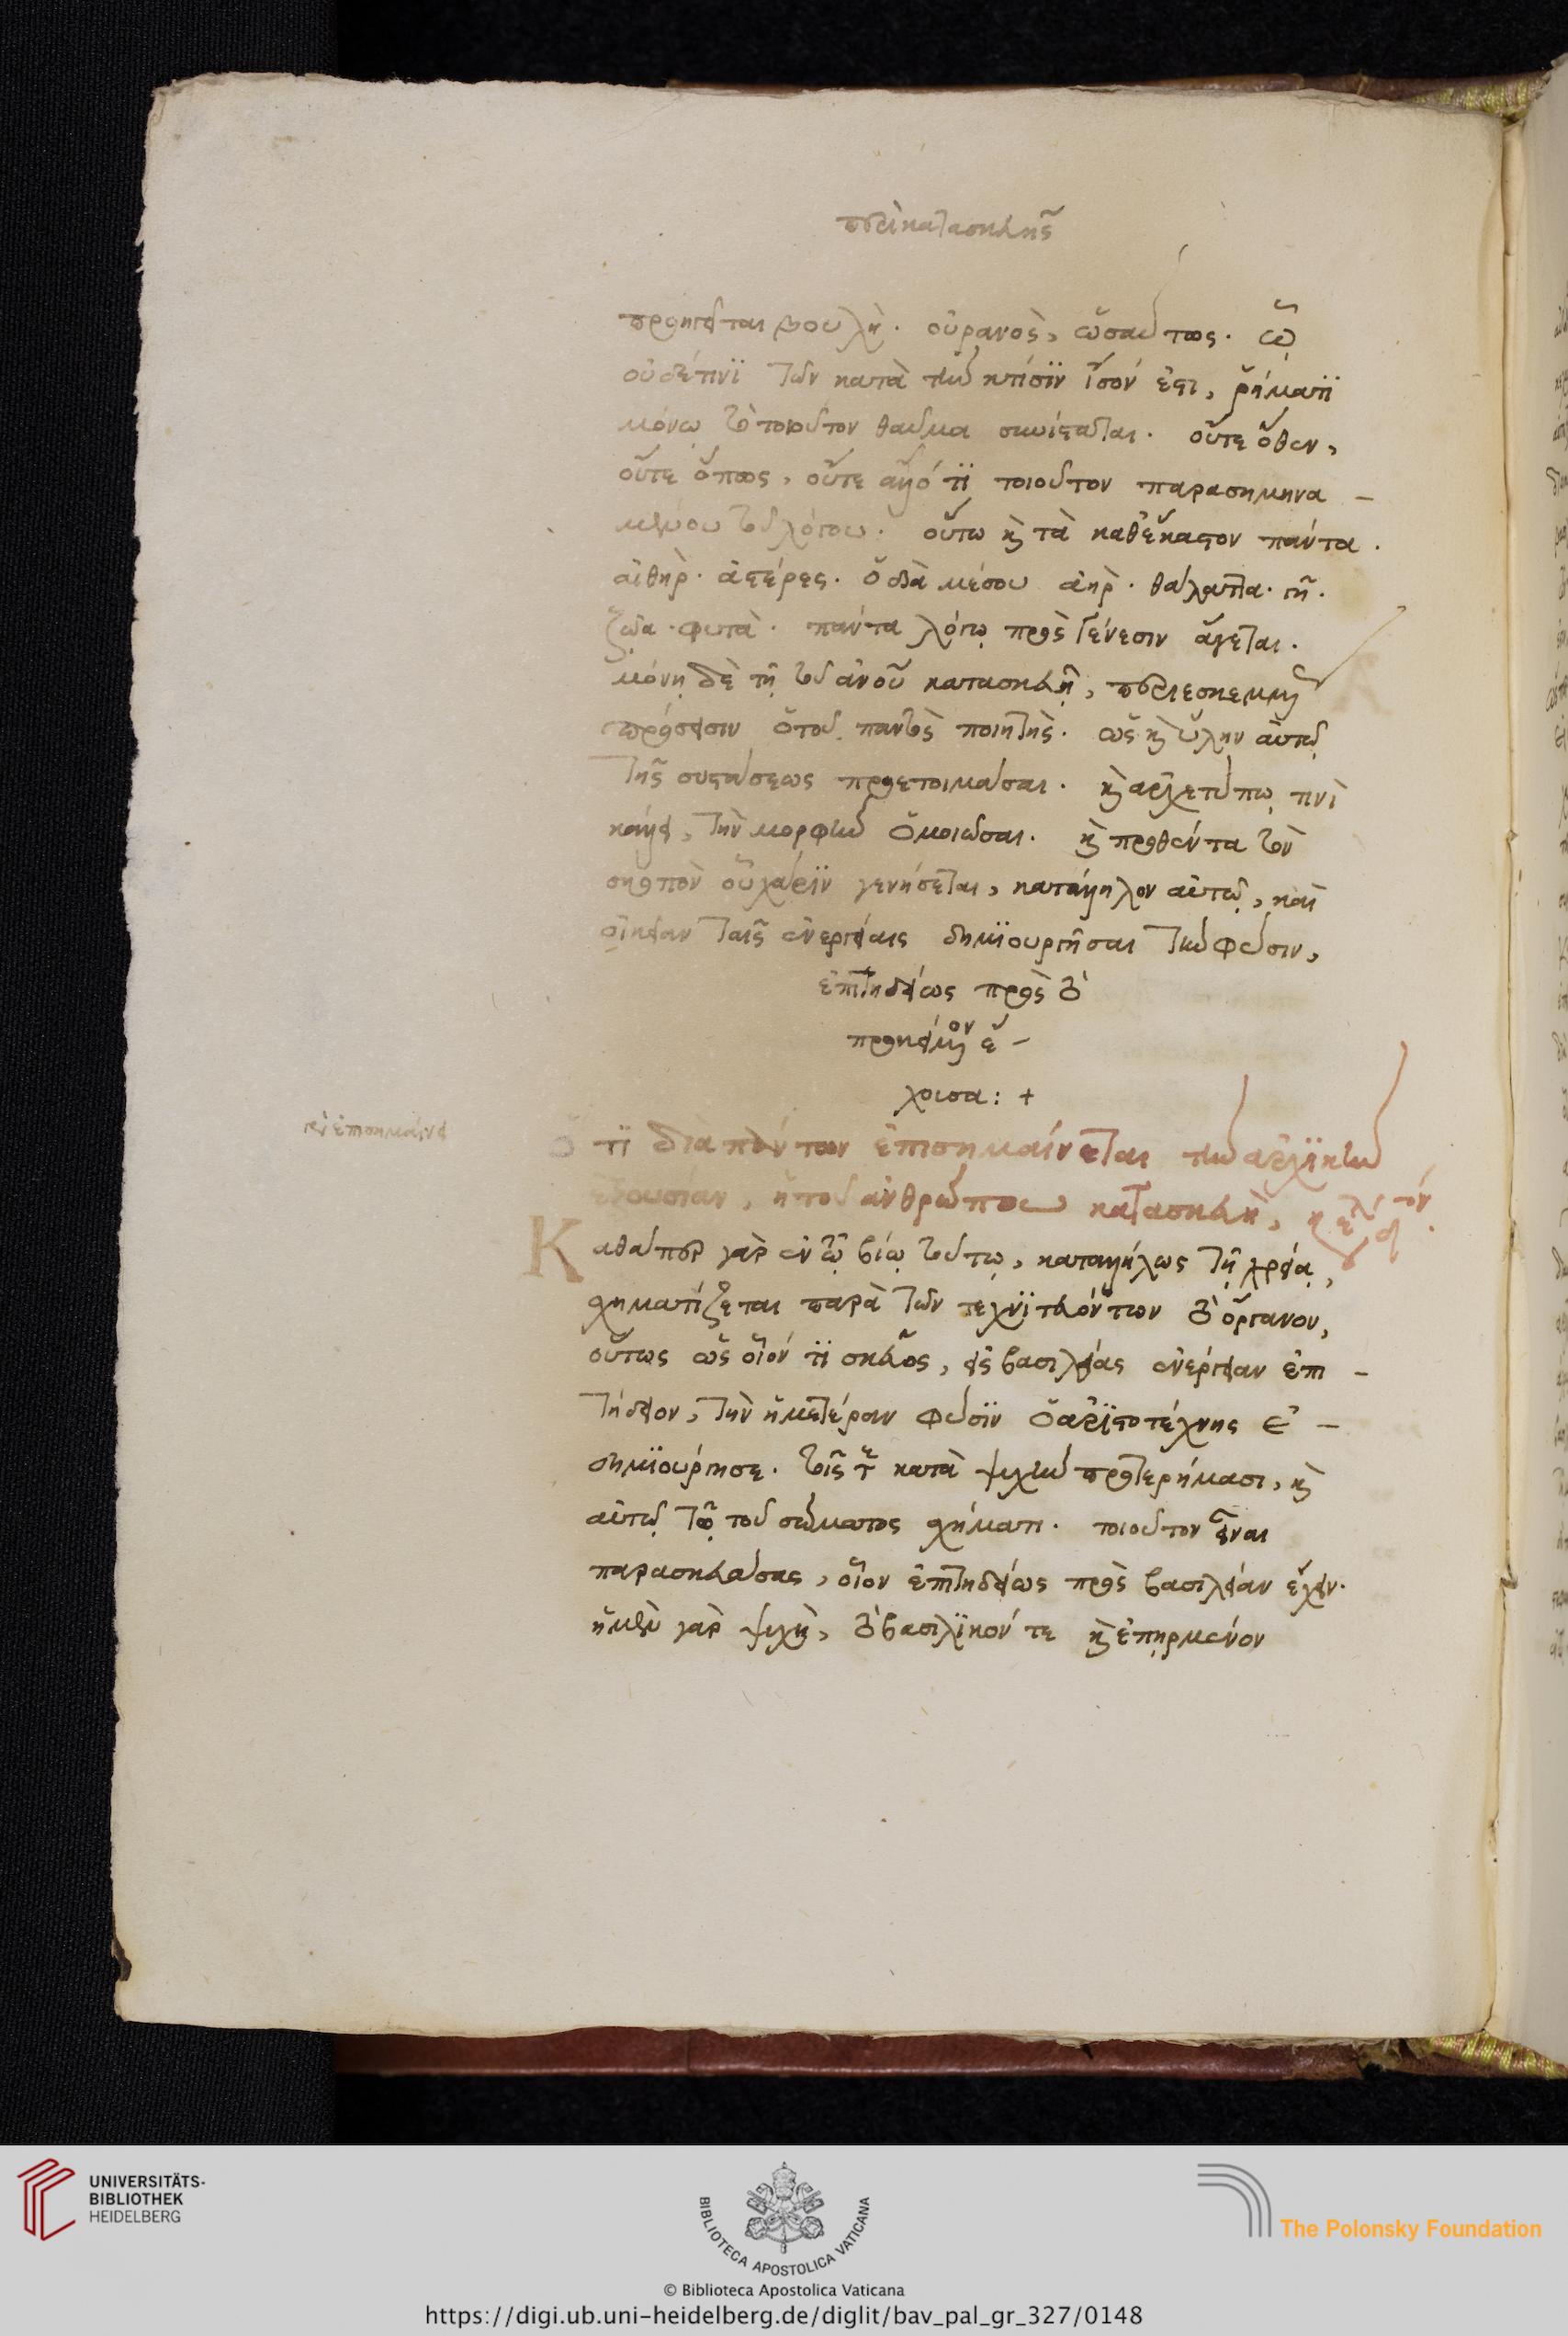 περὶ κατασκευῆς
προηγεῖται βουλή. οὐρανὸς, ὡσαύτως. ᾧ
οὐδέπινϊ τῶν κατὰ τὴν κτίσϊν ἶσόν ἐστι, ῥήματϊ
μόνῳ τὸ τοιοῦτον θαῦμα συνίσταται. οὔτε ὅθεν,
οὔτε ὅπως, οὔτε ἄλλό τϊ τοιοῦτον παρασημηνα –
μένου τοῦ λόγου. οὕτω καὶ τὰ καθέκαστον πάντα.
αἰθὴρ. ἀστέρες. ὁ διὰ μέσου ἀὴρ. θάλαττα. γῆ.
ζῶα. φυτὰ. πάντα λόγῳ πρὸς γένεσιν ἄγεται.
μόνῃ δὲ τῇ τοῦ ἀνου κατασκευῇ, περιεσκεμμένως
πρόσεισιν ὁ τοῦ παντὸς ποιητὴς. ὡς καὶ ὕλην αὐτῷ
τῆς συστάσεως προετοιμάσαι. καὶ ἀρχετύπῳ τινὶ
κάλλει, τὴν μορφὴν ὁμοιῶσαι. καὶ προθέντα τὸν
σκοπὸν οὗ χάρϊν γενήσεται, κατάλληλον αὐτῷ, καὶ
οἰκείαν ταῖς ἐνεργείαις δημϊουργῆσαι τὴν φύσιν,
ἐπιτηδείως πρὸς τὸ
προκείμενον ἔ –
χουσα: +
κε ἐπισημαίνει
Ὅτϊ διὰ πάντων ἐπισημαίνεται τὴν ἀρχϊκὴν
ἐξουσίαν, ἡ τοῦ ἀνθρώπου κατασκευὴ,
Καθάπερ γὰρ ἐν τῷ βίῳ τούτῳ, καταλλήλως τῇ χρείᾳ,
σχηματίζεται παρὰ τῶν τεχνϊτευόντων τὸ ὄργανον,
οὕτως ὡς οἷόν τϊ σκεῦος, εἰς βασιλείας ἐνέργειαν ἐπι –
τήδειον, τὴν ἡμετέραν φύσϊν ὁ ἀρϊστοτέχνης ἐ –
δημϊούργησε. τοῖς τε κατὰ ψυχὴν προτερήμασι, καὶ
αὐτῷ τῷ τοῦ σώματος σχήματι. τοιοῦτον εἶναι
παρασκευάσας, οἷον ἐπιτηδείως πρὸς βασιλείαν ἔχειν.
ἡ μὲν γὰρ ψυχὴ, τὸ βασιλϊκόν τε καὶ ἐπῃρμένον
UNIVERSITÄTS-
BIBLIOTHEK
HEIDELBERG
BIBLIOTECA APOSTOLICA VATICANA
The Polonsky Foundation
© Biblioteca Apostolica Vaticana
https://digi.ub.uni-heidelberg.de/diglit/bav_pal_gr_327/0148